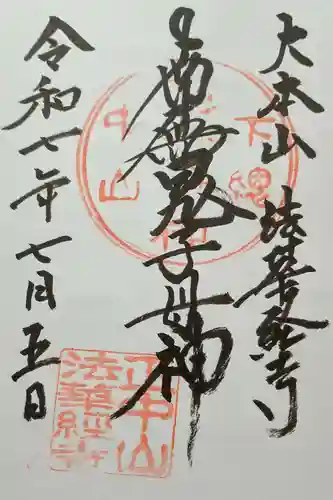 大本山 法華経寺
鬼子母神
令和七年七月五日
下總
中山
正中山
法華経寺